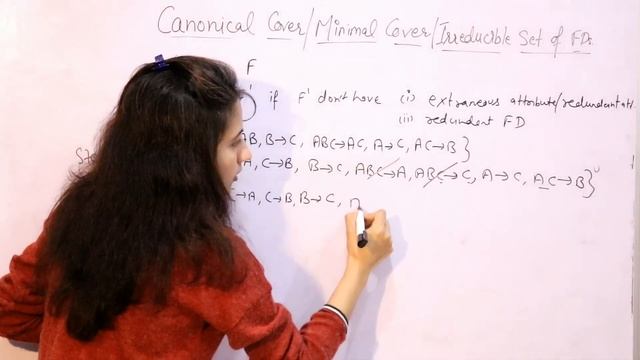 Canonical Cover/Minimal Cover/Irreducible Set of FDs
F
if F' don't have (i) extraneous attribute/redundant att.
(ii) redundent FD
AB, B→C, ABC→AC, A→C, AC→B}
A, C→B, B→C, ABC→A, ABC→C, A→C, AC→B}
→A, C→B, B→C,